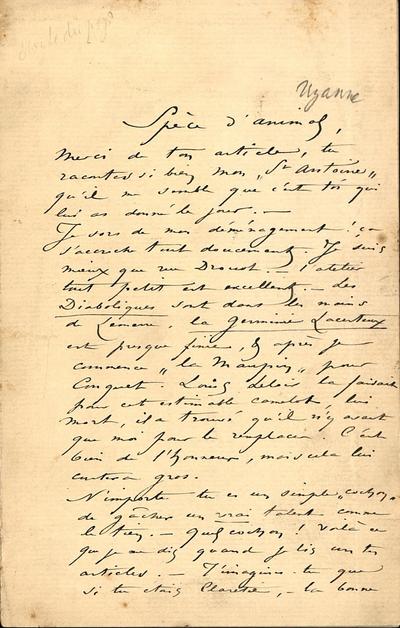 Uzanne
Spèce d'animal,
Merci de ton article, tu
racontes si bien mon "St Antoine"
qu'il me semble que c'est toi qui
lui as donné le jour. —
Je sors de mon déménagement ! ça
s'accroche tout doucement. Je suis
mieux que rue Drouot — l'atelier
tout petit est excellent. — Les
Diaboliques sont dans les mains
de Lemerre, la Germinie Lacerteux
est presque finie, & après je
commence "la Maupin" pour
Conquet. Louis Leloir la faisait
pour cet estimable camelot, lui
mort, il a trouvé qu'il n'y avait
que moi pour le remplacer. C'est
bien de l'honneur, mais cela lui
coutera gros.
N'importe tu es un simple "cochon"
de gâcher un vrai talent comme
le tien. — Quel cochon ! Voilà ce
que je me dis quand je lis un tes
articles. — T'imagines-tu que
si tu étais Claretie, — la bonne